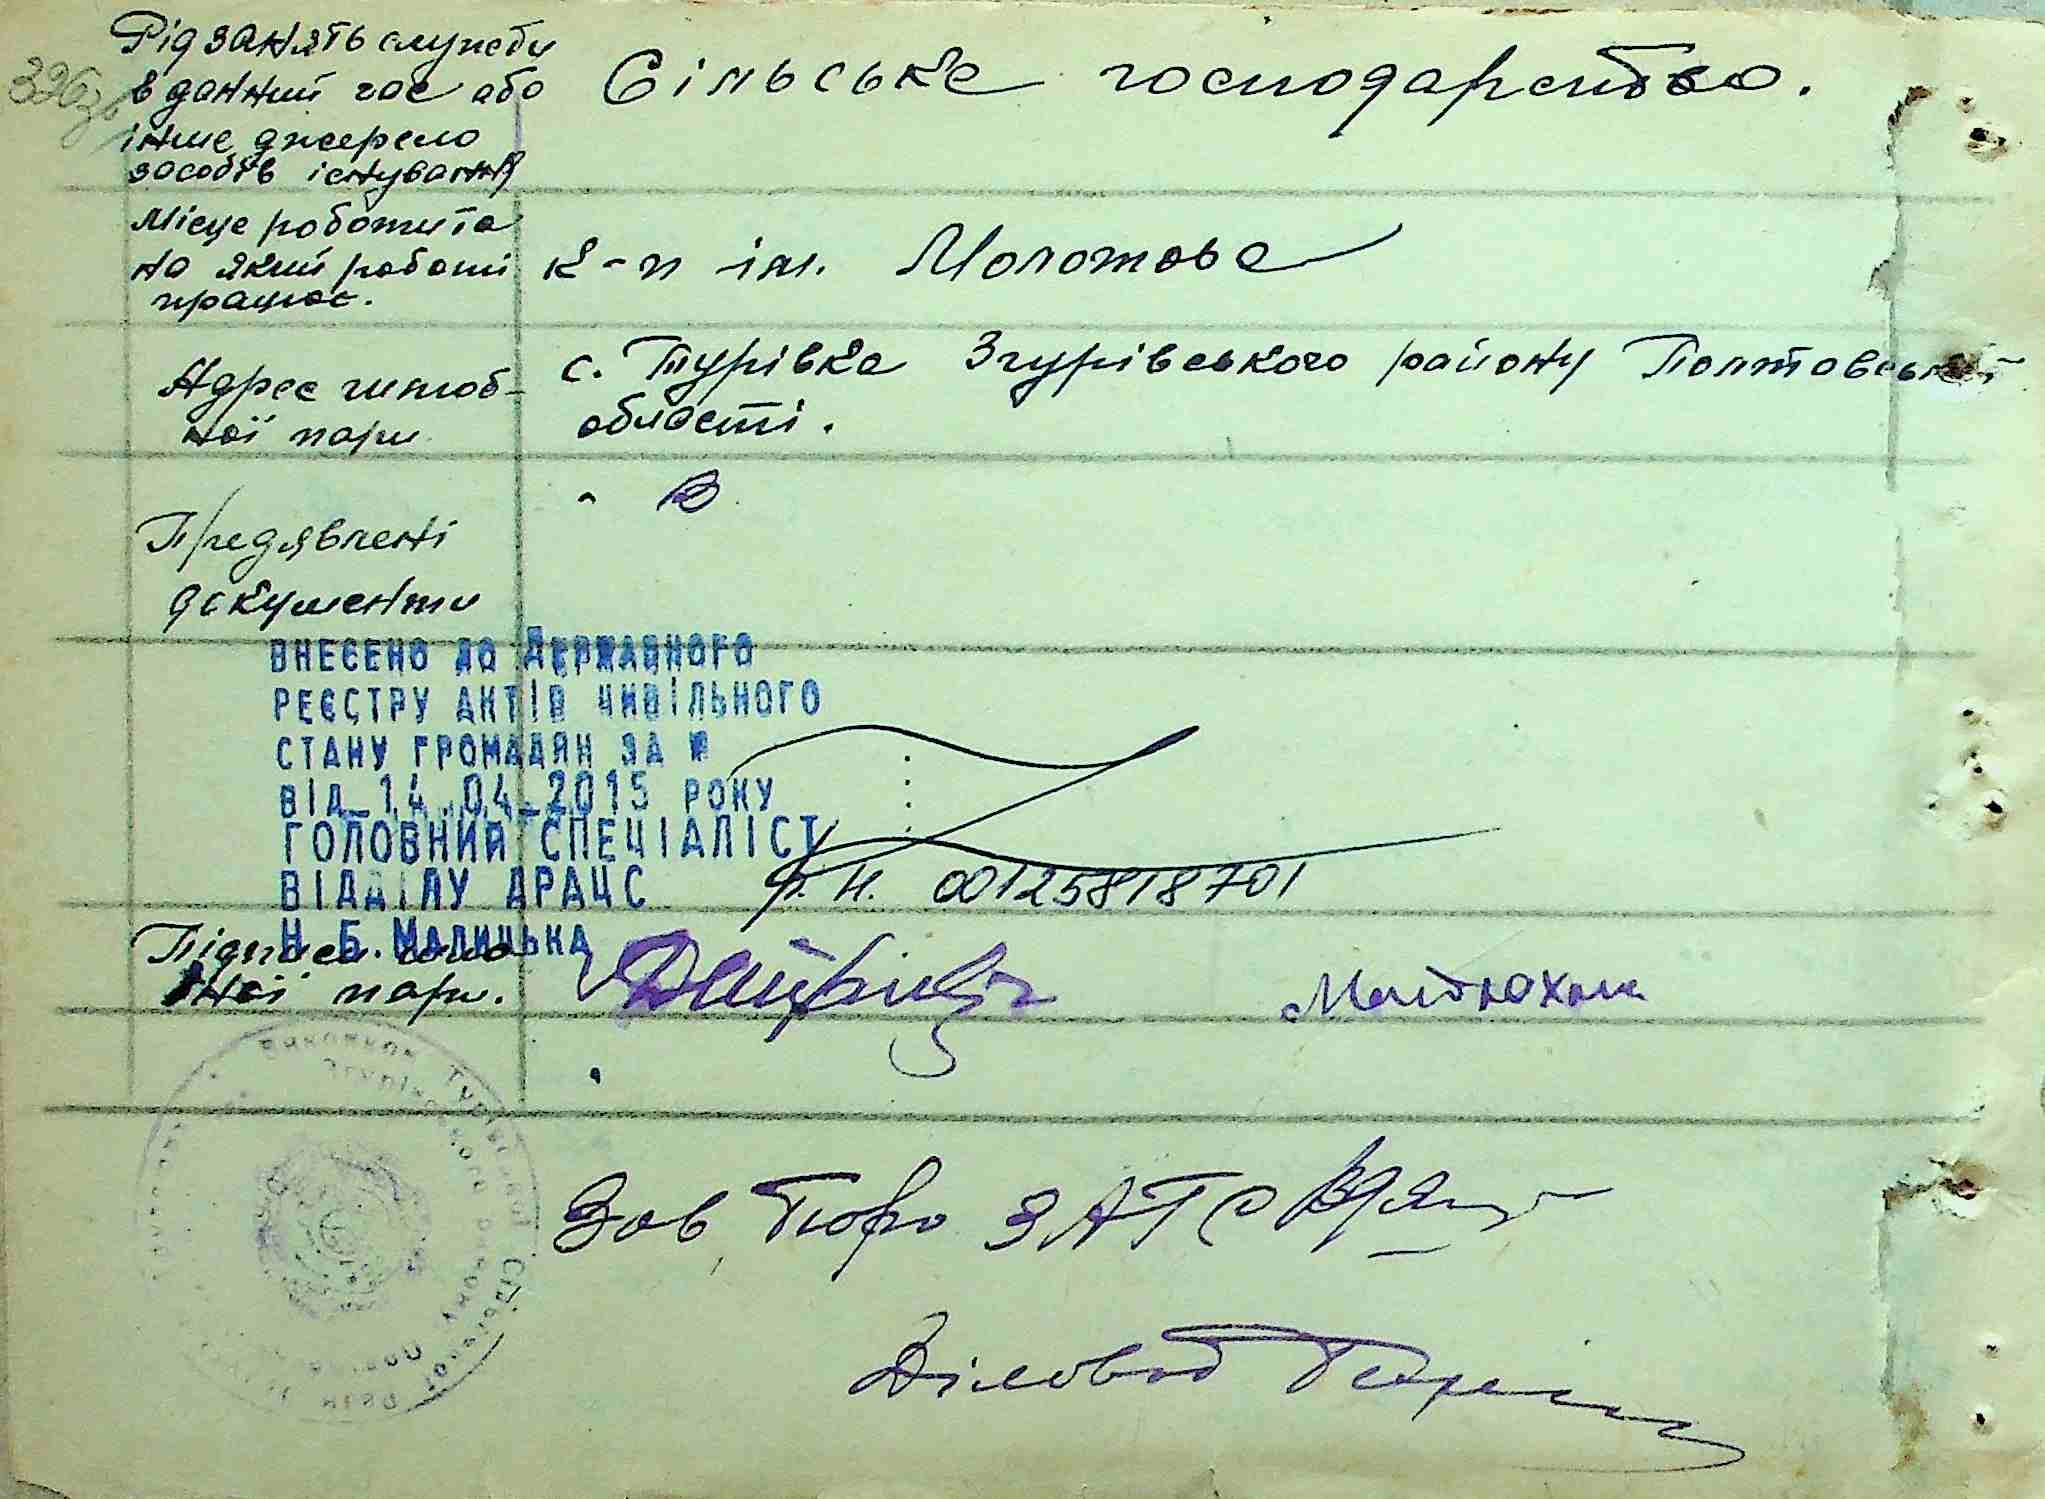 326зв
Рід занять служби
в данний час або
інше джерело
засобів існування
Сільське господарство.
Місце роботи та
на якій роботі
працює.
к-п ім. Молотова
Адрес шлюб-
ної пари
с. Турівка Згурівського району Полтавської
області.
Предявлені
документи
ВНЕСЕНО ДО ДЕРЖАВНОГО
РЕЄСТРУ АКТІВ ЦИВІЛЬНОГО
СТАНУ ГРОМАДЯН ЗА №
ВІД 14.04.2015 РОКУ
ГОЛОВНИЙ СПЕЦІАЛІСТ
ВІДДІЛУ ДРАЦС
Н.Б. Малицька
00125818701
Підписи шлю
бної пари.
Матюхна
Зав Бюро ЗАГС
Діловод